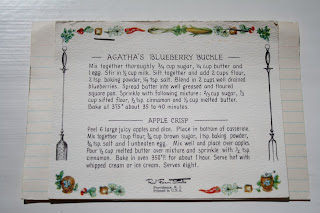 AGATHA'S BLUEBERRY BUCKLE
Mix together thoroughly 3/4 cup sugar, 1/4 cup butter and
1 egg. Stir in 1/2 cup milk. Sift together and add 2 cups flour,
2 tsp. baking powder, 1/2 tsp. salt. Blend in 2 cups well drained
blueberries. Spread butter into well greased and floured
square pan. Sprinkle with following mixture: 1/2 cup sugar, 1/3
cup sifted flour, 1/2 tsp. cinnamon and 1/2 cup melted butter.
Bake at 375° about 35 to 40 minutes.
APPLE CRISP
Peel 6 large juicy apples and dice. Place in bottom of casserole.
Mix together 1 cup flour, 3/4 cup brown sugar, 1 tsp. baking powder,
3/4 tsp. salt and 1 unbeaten egg. Mix well and place over apples.
Pour 1/3 cup melted butter over mixture and sprinkle with 1/2 tsp.
cinnamon. Bake in oven 350°F. for about 1 hour. Serve hot with
whipped cream or ice cream. Serves eight.
Providence, R. I.
Printed in U.S.A.